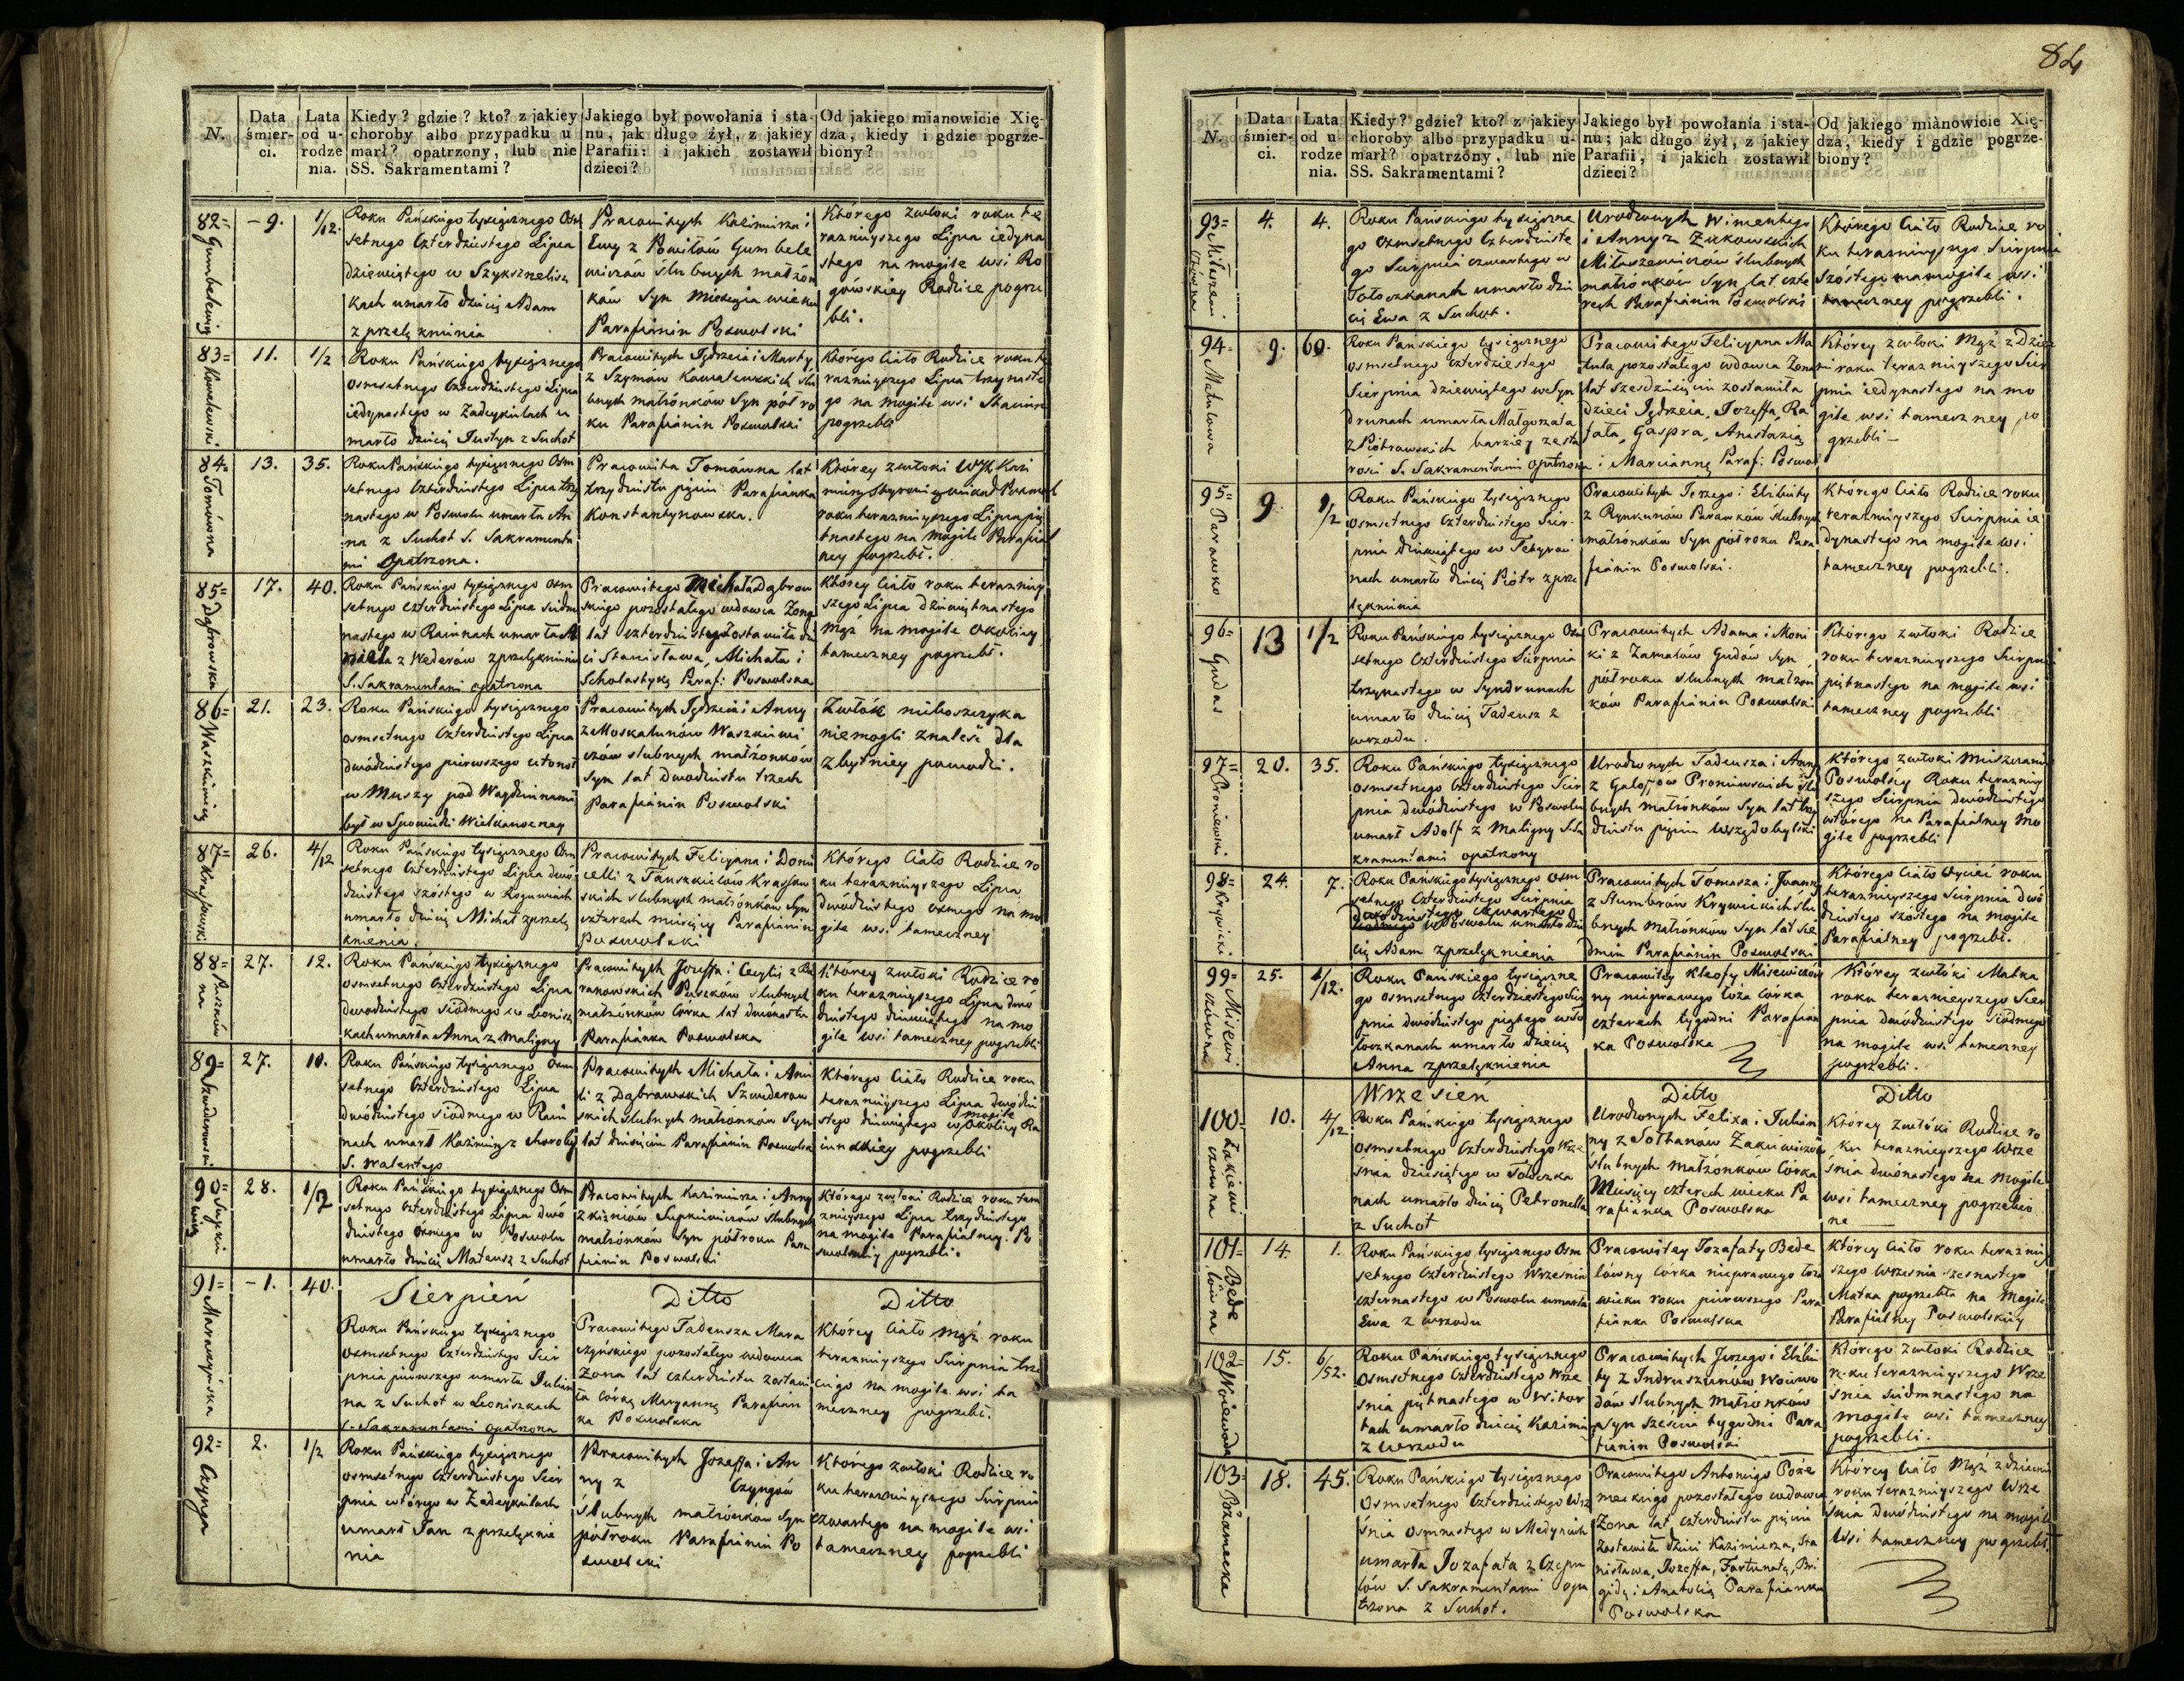 84
N.
Data śmierci.
Lata od urodzenia.
Kiedy? gdzie? kto? z jakiey choroby albo przypadku umarł? opatrzony, lub nie SS. Sakramentami?
Jakiego był powołania i stanu, jak długo żył, z jakiey Parafii: i jakich zostawił dzieci?
Od jakiego mianowicie Xiędza, kiedy i gdzie pogrzebiony?
82 = Gumbelewicz
- 9.
1/12.
Roku Pańskiego tysiącznego Osm
setnego Czterdziestego Lipca
dziewiątego w
kach umarło dziecię Adam
z przelęknienia
Pracowitych Kazimierza i
Ewy z Powiłów Gumbele
wiczów ślubnych małżon
ków Syn Miesiąca wieku
Parafianin Poswolski
Którego zwłoki roku te
raznieyszego Lipca iedyna
stego na mogile wsi Ro
gowskiey Rodzice pogrze
bli.
83 = Kowalewski
11.
1/2
Roku Pańskiego tysiącznego
osmsetnego Czterdziestego Lipca
iedynastego w Zadeykulach u
marło dziecię Justyn z Suchot
Pracowitych Jędrzeia i Marty
z Szymów Kowalewskich ślu
bnych małżonków Syn pół ro
ku Parafianin Poswolski
Którego Ciało Rodzice roku te
raznieyszego Lipca trzynaste
go na mogile wsi
pogrzebli
84 = Tomówna
13.
35.
Roku Pańskiego tysiącznego Osm
setnego Czterdziestego Lipca trzy
nastego w Poswolu umarła An
na z Suchot S. Sakramenta
mi Opatrzona.
Pracowita Tomówna lat
trzydziestu pięciu Parafianka
Konstantynowska.
Którey zwłoki
roku teraznieyszego Lipca pię
tnastego na Mogile Parafial
ney pogrzebł.
85 = Dąbrowska
17.
40.
Roku Pańskiego tysiącznego osm
setnego czterdziestego Lipca siedm
nastego w Rainach umarła
z Wederów z przelęknienia
S. Sakramentami opatrzona
Pracowitego Michała Dąbrow
skiego pozostałego wdowca Żona
lat czterdziestu zostawiła dzie
ci Stanisława, Michała i
Scholastykę Paraf: Poswolska
Którey Ciało roku terazniey
szego Lipca dziewiętnastego
Mąż na mogile okolicy
tameczney pogrzebł.
86 = Waszkiewicz
21.
23.
Roku Pańskiego tysiącznego
osmsetnego Czterdziestego Lipca
dwódziestego pierwszego utonoł
w Muszy pod
był w Spowiedzi Wielkanocney
Pracowitych Jędrzeia i Anny
z Moskalunów Waszkiewi
czów ślubnych małżonków
Syn lat dwudziestu trzech
Parafianin Poswolski
Zwłok nieboszczyka
niemogli znaleść dla
zbytniey powodzi.
87 = Krasowski
26.
4/12
Roku Pańskiego tysiącznego Osm
setnego Czterdziestego Lipca dwó
dziestego szóstego w
umarło dziecię Michał z przelę
knienia.
Pracowitych Felicyana i Domi
celli z Krassow
skich ślubnych małżonków Syn
czterech miesięcy Parafianin
Poswolski
Którego Ciało Rodzice ro
ku teraznieyszego Lipca
dwódziestego osmego na mo
gile wsi tameczney
88 =
27.
12.
Roku Pańskiego tysiącznego
osmsetnego Czterdziestego Lipca
dwódziestego siódmego w Leonisz
kach umarła Anna z Maligny
Pracowitych Jozeffa i Cecylij z
ślubnych
małżonków Córka lat dwónastu
Parafianka Poswolska
Którey zwłoki Rodzice ro
ku teraznieyszego Lipca dwó
dziestego dziewiątego na mo
gile wsi tameczney pogrzebli
89 =
27.
10.
Roku Pańskiego tysiącznego Osm
setnego Czterdziestego Lipca
dwódziestego siódmego w Rai
nach umarł Kazimierz z choroby
S. Walentego
Pracowitych Michała i
z Dąbrowskich Szwederow
skich ślubnych małżonków Syn
lat dziesięciu Parafianin Poswolski
Którego Ciało Rodzice roku
teraznieyszego Lipca dwódzie
stego dziewiątego w mogile okolicy Ra
pogrzebli
90 =
28.
1/2
Roku Pańskiego tysiącznego Osm
setnego Czterdziestego Lipca dwó
dziestego ósmego w Poswolu
umarło dziecię Mateusz z Suchot
Pracowitych Kazimierza i Anny
z ślubnych
małżonków Syn półroku Para
fianin Poswolski
Którego zwłoki Rodzice roku tera
znieyszego Lipca trzydziestego
na mogile Parafialney Po
swolskiey pogrzebli.
91 = Maraczyńska
- 1.
40.
Sierpień
Ditto
Ditto
Roku Pańskiego tysiącznego
osmsetnego Czterdziestego Sier
pnia pierwszego umarła Julian
na z Suchot w Leoniszkach
S. Sakramentami opatrzona
Pracowitego Tadeusza Mara
czyńskiego pozostałego wdowca
Żona lat czterdziestu zostawi
ła Córkę Maryannę Parafian
ka Poswolska
Którey Ciało Mąż roku
teraznieyszego Sierpnia trze
ciego na mogile wsi ta
meczney pogrzebł.
92 = Czynga
2.
1/2
Roku Pańskiego tysiącznego
osmsetnego Czterdziestego Sier
pnia wtórego w Zadeykulach
umarł Jan z przelęknie
nia
Pracowitych Jozeffa i An
ny z Czyngów
ślubnych małżonków Syn
półroku Parafianin Po
swolski
Którego zwłoki Rodzice ro
ku teraznieyszego Sierpnia
czwartego na mogile wsi
tameczney pogrzebli
N.
Data śmierci.
Lata od urodzenia.
Kiedy? gdzie? kto? z jakiey choroby albo przypadku umarł? opatrzony, lub nie SS. Sakramentami?
Jakiego był powołania i stanu; jak długo żył, z jakiey Parafii, i jakich zostawił dzieci?
Od jakiego mianowicie Xiędza, kiedy i gdzie pogrzebiony?
93 =
4.
4.
Roku Pańskiego tysiączne
go Ozmsetnego Czterdzieste
go Sierpnia czwartego w
Tołoczkanach umarło dzie
cię Ewa z Suchot.
Urodzonych Wimentego
i Anny z Żukowskich
Miłaszewiczów ślubnych
małżonków Syn lat czte
rech Parafianin Poswolski
Którego Ciało Rodzice ro
ku teraznieyszego Sierpnia
szóstego na mogile wsi
tameczney pogrzebli.
94 = Matulowa
9.
60.
Roku Pańskiego tysiącznego
osmsetnego czterdziestego
Sierpnia dziewiątego w Syn
drunach umarła Małgorzata
z Piotrowskich barziey ze sta
rości S. Sakramentami opatrzona
Pracowitego Felicyana Ma
tula pozostałego wdowca Żona
lat szesdziesięciu zostawiła
dzieci Jędrzeia, Jozeffa, Ra
fała, Gaspra, Anastazią
i Mariannę Paraf: Poswol
Którey zwłoki Mąż z Dzie
mi roku teraznieyszego Sier
pnia iedynastego na mo
gile wsi tameczney po
grzebli -
95 = Parawko
9
1/2
Roku Pańskiego tysiącznego
osmsetnego Czterdziestego Sier-
pnia dziewiątego w
nach umarło dziecię Piotr z prze
lęknienia
Pracowitych Jerzego i Elżbiety
z Rynkunów Parawków ślubnych
małżonków Syn półroku Para
fianin Poswolski.
Którego Ciało Rodzice roku
teraznieyszego Sierpnia ie
dynastego na mogile wsi
tameczney pogrzebli.
96 = Gudas
13
1/2
Roku Pańskiego tysiącznego Osm
setnego Czterdziestego Sierpnia
trzynastego w Syndrunach
umarło dziecię Tadeusz z
wrzodu.
Pracowitych Adama i Moni
ki z Zamałów Gudów Syn
półroku ślubnych małżon
ków Parafianin Poswolski
Którego zwłoki Rodzice
roku teraznieyszego Sierpnia
piętnastego na mogile wsi
tameczney pogrzebli
97 = Proniewski
20.
35.
Roku Pańskiego tysiącznego
osmsetnego Czterdziestego Sier
pnia dwódziestego w Poswolu
umarł Adolf z Maligny S. Sa
kramentami opatrzony
Urodzonych Tadeusza i Anny
z Proniewskich ślu
bnych małżonków Syn lat trzy
dziestu pięciu
Którego zwłoki
Poswolscy Roku teraznięy
szego Sierpnia dwódziestego
wtórego na Parafialney Mo
gile pogrzebli
98 = Krywicki
24.
7.
Roku Pańskiego tysiącznego Osm
setnego Czterdziestego Sierpnia
dwódziestego czwartego
w Poswolu umarło dzie
cię Adam z przelęknienia
Pracowitych Tomasza i Joanny
z Stumbrów Krywickich ślu
bnych Małżonków Syn lat sie
dmiu Parafianin Poswolski
Którego Ciało Oyciec roku
teraznieyszego Sierpnia dwó
dziestego szóstego na mogile
Parafialney pogrzebł.
99 =
25.
4/12.
Roku Pańskiego tysiączne
go osmsetnego Czterdziestego Sier
pnia dwódziestego piątego w To
łoczkanach umarło dziecię
Anna z przelęknienia
Pracowitey Kleofy Misewiczów
ny nieprawego łoża Córka
czterech tygodni Parafian
ka Poswolska
Którey zwłóki Matka
roku teraznieyszego Sier
pnia dwódziestego siódmego
na mogile wsi tameczney
pogrzebli.
Wrzesień
Ditto
Ditto
100
10.
4/12
Roku Pańskiego tysiącznego
osmsetnego Czterdziestego Wrze
śnia dziesiątego w Tołoczka
nach umarło dziecię Petronella
z Suchot
Urodzonych Felixa i Julian
ny z Sołtanów
ślubnych małżonków Córka
Miesięcy czterech wieku Pa
rafianka Poswolska
Którey zwłóki Rodzice ro
ku teraznieyszego Wrze
śnia dwónastego na mogile
wsi tameczney pogrzebio
ne
101 = Bedelówna
14
1.
Roku Pańskiego tysiącznego Osm
setnego Czterdziestego Wrzesnia
czternastego w Poswolu umarła
Ewa z wrzodu
Pracowitey Jozafaty Bede
lówny Córka nieprawego łoża
wieku roku pierwszego Para
fianka Poswolska
Którey Ciało roku teraźniey
szego Wrzesnia szesnastego
Matka pogrzebła na Mogile
Parafialney Poswolskiey
102 = Woiewoda
15.
6/52.
Roku Pańskiego tysiącznego
osmsetnego Czterdziestego Wrze
śnia piętnastego w Witar
tach umarło dziecię Kazimi
z wrzodu
Pracowitych Jerzego i Elżbie
ty z Indruszunów Woiewo
dów ślubnych Małżonków
Syn sześciu tygodni Para
fianin Poswolski
Którego zwłoki Rodzice
roku teraznieyszego Wrze
śnia siedmnastego na
mogile wsi tameczney
pogrzebli.
103 = Pożamecka
18.
45.
Roku Pańskiego tysiącznego
Osmsetnego Czterdziestego Wrze
śnia osmnastego w Medyniach
umarła Jozafata z Czepu
lów S. Sakramentami opa
trzona z Suchot.
Pracowitego Antoniego Poże
meckiego pozostałego wdowca
Żona lat czterdziestu pięciu
zostawiła dzieci Kazimierza, Sta
nisława, Jozeffa, Fortunatę, Bri
gidę i Anatolią Parafianka
Poswolska
Którey Ciało Mąż z dziećmi
roku teraznieyszego Wrze
śnia dwódziestego na mogile
wsi tameczney pogrzebł.